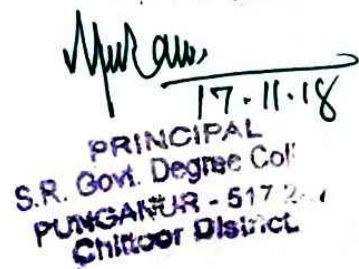 17.11.18
PRINCIPAL
S.R. Govt. Degree Col
PUNGANUR - 517 2
Chittoor District